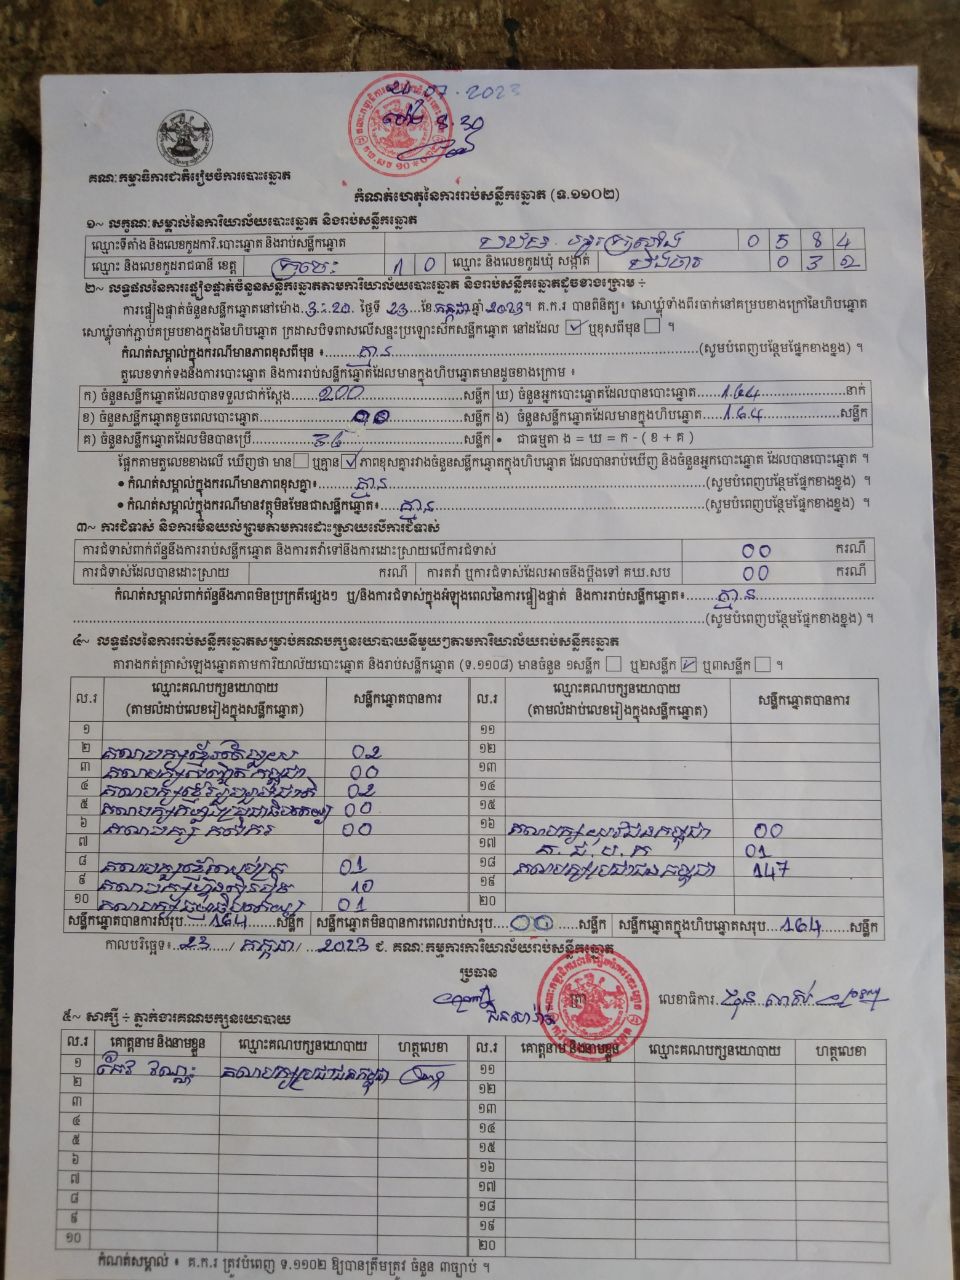 20 07 - 2023
ម៉ោង 8.30
គណៈកម្មាធិការជាតិរៀបចំការបោះឆ្នោត
កំណត់ហេតុនៃការរាប់សន្លឹកឆ្នោត (ទ.១១០២)
១~ លក្ខណៈសម្គាល់នៃការិយាល័យបោះឆ្នោត និងរាប់សន្លឹកឆ្នោត
ឈ្មោះទីតាំង និងលេខកូដការិ.បោះឆ្នោត និងរាប់សន្លឹកឆ្នោត 0 5 8 4
ឈ្មោះ និងលេខកូដរាជធានី ខេត្ត ក្រចេះ 1 0 ឈ្មោះ និងលេខកូដឃុំ សង្កាត់ 0 3 2
២~ លទ្ធផលនៃការផ្ទៀងផ្ទាត់ចំនួនសន្លឹកឆ្នោតតាមការិយាល័យបោះឆ្នោត និងរាប់សន្លឹកឆ្នោតដូចខាងក្រោម ÷
ការផ្ទៀងផ្ទាត់ចំនួនសន្លឹកឆ្នោតនៅម៉ោង 3:20 ថ្ងៃទី 23 ខែ កក្កដា ឆ្នាំ 2023។ គ.ក.រ បានពិនិត្យ៖ សោឃ្លុំទាំងពីរចាក់នៅគម្របខាងក្រៅនៃហិបឆ្នោត
សោឃ្លុំចាក់ភ្ជាប់គម្របខាងក្នុងនៃហិបឆ្នោត ក្រដាសបិទពាសលើសន្ទះប្រឡោះសឹកសន្លឹកឆ្នោត នៅដដែល ☑ ឬខុសពីមុន ☐ ។
កំណត់សម្គាល់ក្នុងករណីមានភាពខុសពីមុន ៖ គ្មាន (សូមបំពេញបន្ថែមផ្នែកខាងខ្នង) ។
តួលេខទាក់ទងនឹងការបោះឆ្នោត និងការរាប់សន្លឹកឆ្នោតដែលមានក្នុងហិបឆ្នោតមានដូចខាងក្រោម ៖
ក) ចំនួនសន្លឹកឆ្នោតដែលបានទទួលជាក់ស្តែង 200 សន្លឹក ឃ) ចំនួនអ្នកបោះឆ្នោតដែលបានបោះឆ្នោត 164 នាក់
ខ) ចំនួនសន្លឹកឆ្នោតខូចពេលបោះឆ្នោត 00 សន្លឹក ង) ចំនួនសន្លឹកឆ្នោតដែលមានក្នុងហិបឆ្នោត 164 សន្លឹក
គ) ចំនួនសន្លឹកឆ្នោតដែលមិនបានប្រើ 36 សន្លឹក • ជាធម្មតា ង = ឃ = ក - ( ខ + គ )
ផ្អែកតាមតួលេខខាងលើ ឃើញថា មាន ☐ ឬគ្មាន ☑ ភាពខុសគ្នារវាងចំនួនសន្លឹកឆ្នោតក្នុងហិបឆ្នោត ដែលបានរាប់ឃើញ និងចំនួនអ្នកបោះឆ្នោត ដែលបានបោះឆ្នោត ។
• កំណត់សម្គាល់ក្នុងករណីមានភាពខុសគ្នា៖ គ្មាន (សូមបំពេញបន្ថែមផ្នែកខាងខ្នង) ។
• កំណត់សម្គាល់ក្នុងករណីមានវត្ថុមិនមែនជាសន្លឹកឆ្នោត៖ គ្មាន (សូមបំពេញបន្ថែមផ្នែកខាងខ្នង) ។
៣~ ការជំទាស់ និងការមិនយល់ព្រមតាមការដោះស្រាយលើការជំទាស់
ការជំទាស់ពាក់ព័ន្ធនឹងការរាប់សន្លឹកឆ្នោត និងការតវ៉ាទៅនឹងការដោះស្រាយលើការជំទាស់ 00 ករណី
ការជំទាស់ដែលបានដោះស្រាយ ករណី ការតវ៉ា ឬការជំទាស់ដែលអាចនឹងប្តឹងទៅ គឃ.សប 00 ករណី
កំណត់សម្គាល់ពាក់ព័ន្ធនឹងភាពមិនប្រក្រតីផ្សេងៗ ឬ/និងការជំទាស់ក្នុងអំឡុងពេលនៃការផ្ទៀងផ្ទាត់ និងការរាប់សន្លឹកឆ្នោត៖ គ្មាន
(សូមបំពេញបន្ថែមផ្នែកខាងខ្នង) ។
៤~ លទ្ធផលនៃការរាប់សន្លឹកឆ្នោតសម្រាប់គណបក្សនយោបាយនីមួយៗតាមការិយាល័យរាប់សន្លឹកឆ្នោត
តារាងកត់ត្រាសំឡេងឆ្នោតតាមការិយាល័យបោះឆ្នោត និងរាប់សន្លឹកឆ្នោត (ទ.១១០៨) មានចំនួន ១សន្លឹក ☐ ឬ២សន្លឹក ☑ ឬ៣សន្លឹក ☐ ។
ល.រ ឈ្មោះគណបក្សនយោបាយ (តាមលំដាប់លេខរៀងក្នុងសន្លឹកឆ្នោត) សន្លឹកឆ្នោតបានការ ល.រ ឈ្មោះគណបក្សនយោបាយ (តាមលំដាប់លេខរៀងក្នុងសន្លឹកឆ្នោត) សន្លឹកឆ្នោតបានការ
១ ១១
២ 02 ១២
៣ 00 ១៣
៤ 02 ១៤
៥ 00 ១៥
៦ គណបក្ស កសិករ 00 ១៦ គណបក្ស យុវជនកម្ពុជា 00
៧ ១៧ គ.ជ.ប.ក 01
៨ 01 ១៨ គណបក្សប្រជាជនកម្ពុជា 147
៩ គណបក្សហ្វ៊ុនស៊ិនប៉ិច 10 ១៩
១០ គណបក្សធម្មាធិបតេយ្យ 01 ២០
សន្លឹកឆ្នោតបានការសរុប 164 សន្លឹក សន្លឹកឆ្នោតមិនបានការពេលរាប់សរុប 00 សន្លឹក សន្លឹកឆ្នោតក្នុងហិបឆ្នោតសរុប 164 សន្លឹក
កាលបរិច្ឆេទ៖ 23 / កក្កដា / 2023 ជ. គណៈកម្មការការិយាល័យរាប់សន្លឹកឆ្នោត
ប្រធាន
លេខាធិការ
៥~ សាក្សី ÷ ភ្នាក់ងារគណបក្សនយោបាយ
ល.រ គោត្តនាម និងនាមខ្លួន ឈ្មោះគណបក្សនយោបាយ ហត្ថលេខា ល.រ គោត្តនាម និងនាមខ្លួន ឈ្មោះគណបក្សនយោបាយ ហត្ថលេខា
១ កែវ វណ្ណៈ គណបក្សប្រជាជនកម្ពុជា ១១
២ ១២
៣ ១៣
៤ ១៤
៥ ១៥
៦ ១៦
៧ ១៧
៨ ១៨
៩ ១៩
១០ ២០
កំណត់សម្គាល់ ៖ គ.ក.រ ត្រូវបំពេញ ទ.១១០២ ឱ្យបានត្រឹមត្រូវ ចំនួន ៣ច្បាប់ ។